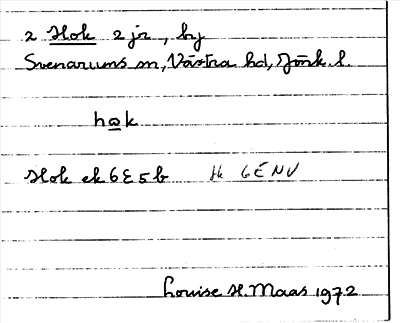 2 Hok 2 jr, by
Svenarums sn, Västra hd, Jönk. l.
hωk
Hok ek 6E5b fk 6E NV
Louise H. Maas 1972